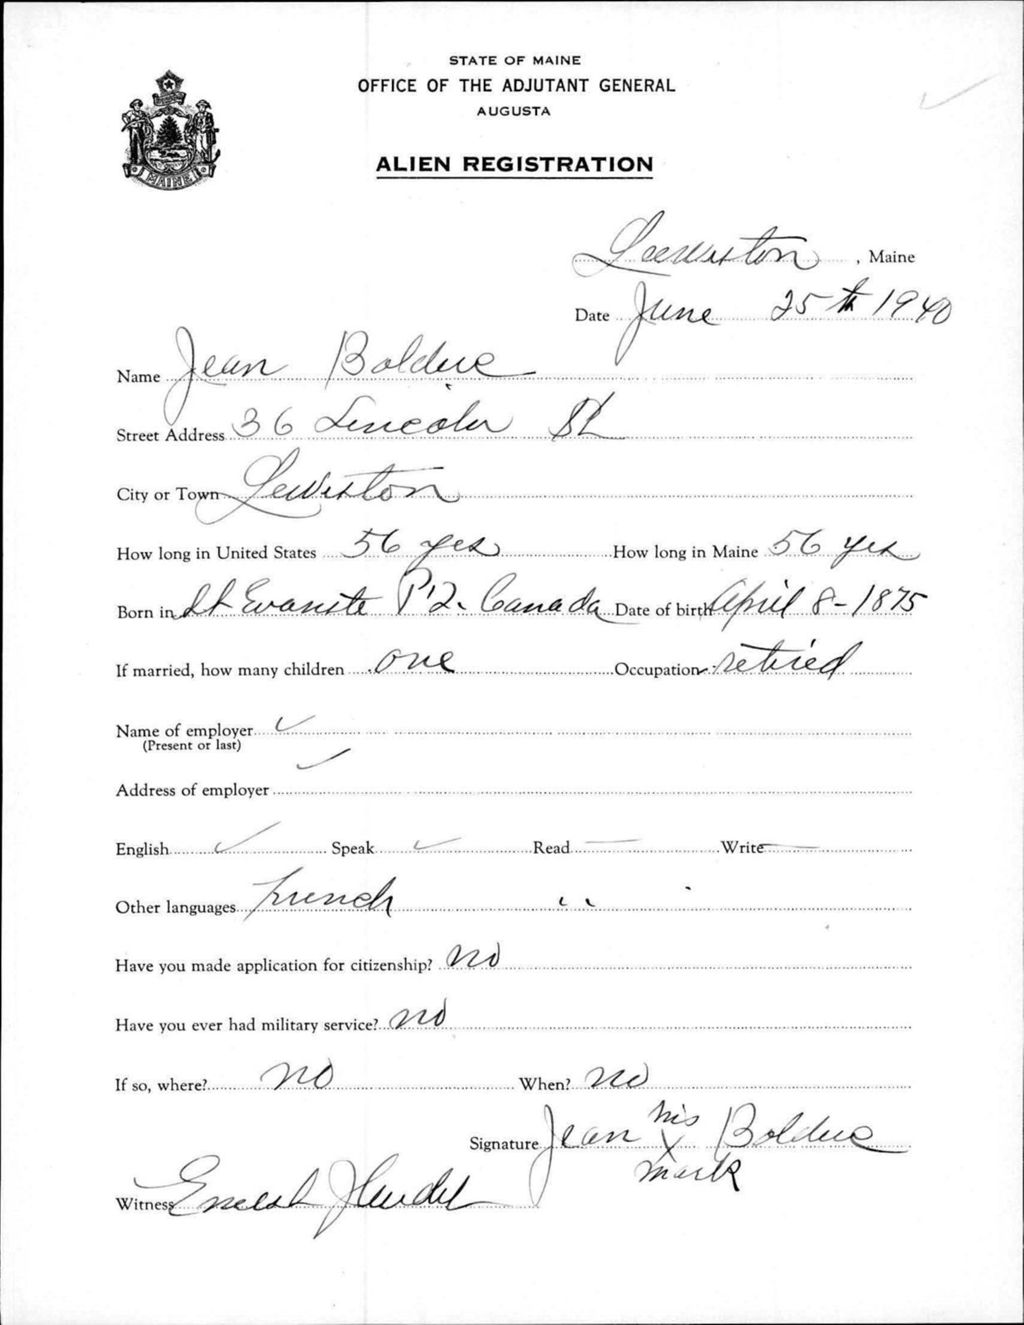 STATE OF MAINE
OFFICE OF THE ADJUTANT GENERAL
AUGUSTA
ALIEN REGISTRATION
MAINE
Lewiston, Maine
Date June 25th 1940
Name Jean Bolduc
Street Address 36 Lincoln St
City or Town Lewiston
How long in United States 56 yrs How long in Maine 56 yrs
Born in St Evariste P'2. Canada Date of birth April 8-1875
If married, how many children one Occupation retired
Name of employer ✓
(Present or last)
✓
Address of employer
English ✓ Speak ✓ Read — Write —
Other languages French
Have you made application for citizenship? no
Have you ever had military service? no
If so, where? no When? no
Signature Jean his X mark Bolduc
Witness